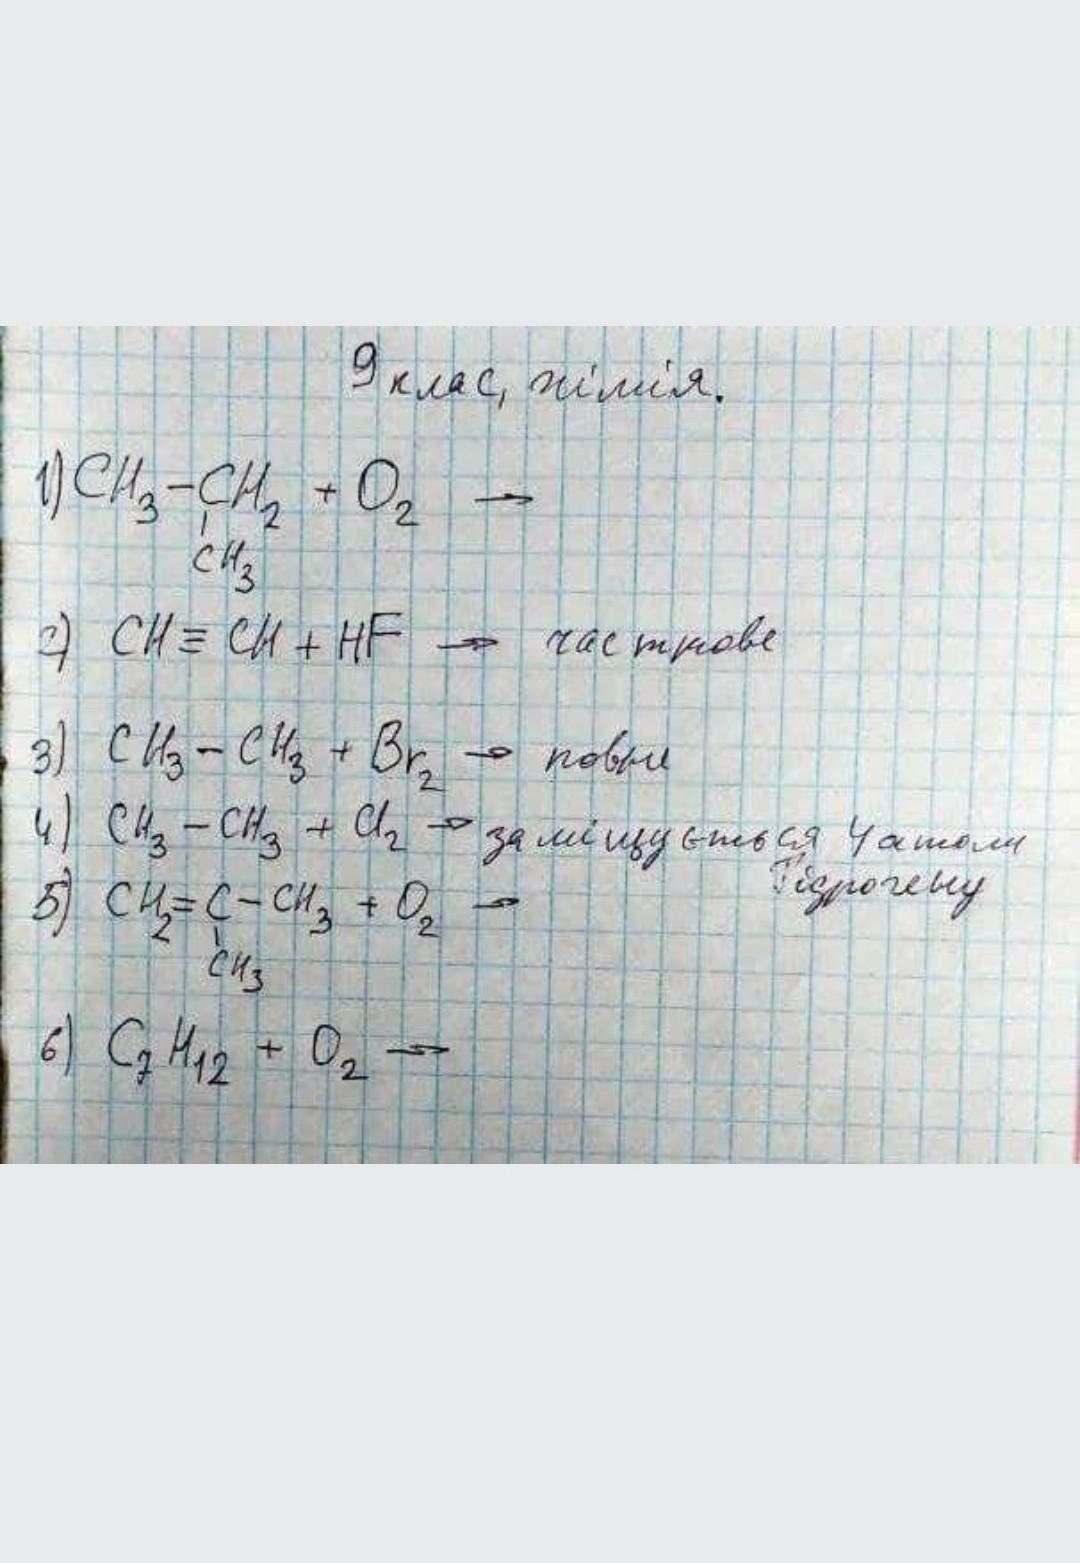 9 клас, хімія.
1) CH₃-CH₂ + O₂ →
CH₃
2) CH≡CH + HF → часткове
3) CH₃-CH₃ + Br₂ → повне
4) CH₃-CH₃ + Cl₂ → заміщується 4 атоми
Гідрогену
5) CH₂=C-CH₃ + O₂ →
CH₃
6) C₇H₁₂ + O₂ →